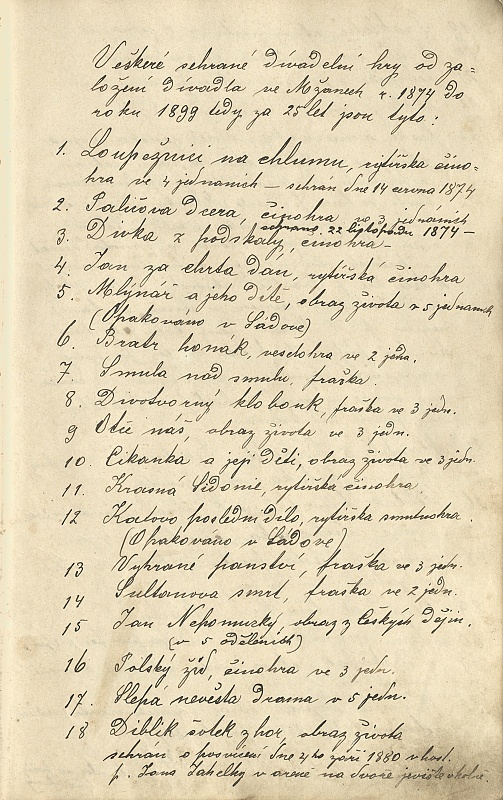 Veškeré sehrané divadelní hry od za=
ložení divadla ve Mžanech r. 1874 do
roku 1899 tedy za 25 let jsou tyto:
1. Loupežníci na chlumu, rytířská čino-
hra ve 4 jednáních – sehrán dne 14 června 1874
2. Paličova dcera, činohra ve 3 jednáních
sehrane 22 listopadu 1874 –
3. Divka z podskalý, činohra –
4. Jan za chrta dan, rytířská činohra
5. Mlýnář a jeho ditě, obraz života v 5 jednáních
(Opakováno v Sádové)
6. Bratr honák, veselohra ve 2 jedn.
7. Smula nad smulu, fraška.
8. Divotvorný klobouk, fraška ve 3 jedn.
9 Otče náš, obraz života ve 3 jedn.
10. Cikánka a její děti, obraz života ve 3 jedn.
11. Krásná Sidonie, rytířská činohra.
12 Katovo poslední dílo, rytířská smutnohra.
(Opakováno v Sádové)
13 Vyhrané panství, fraška ve 3 jedn.
14 Sultanova smrt, fraška ve 2 jedn.
15 Jan Nepomucký, obraz z Českých dějin.
(v 5 odděleních)
16 Polský žid, činohra ve 3 jedn.
17. Slepá nevěsta Drama v 5 jedn.
18 Diblík šotek z hor, obraz života
sehrán o posvícení dne 4ho září 1880 v host.
p. Jana v areně na dvoře